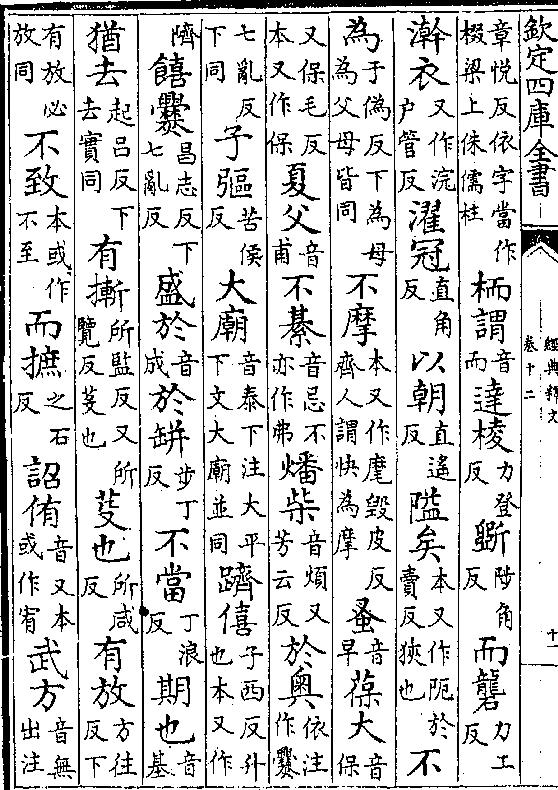 欽定四庫全書 經典釋文 卷十二 十一
章悅反依字當作棳梁上侏儒柱 栭謂音而 達棱力登反 斲陟角反 而礱力工反
澣衣又作浣户管反 濯冠直角反 以朝直遥反 隘矣本又作阨於賣反狹也 不
為于偽反下為母為父母皆同 不摩本又作麾毀皮反齊人謂快為摩 蚤音早 葆大音保
又保毛反本又作保 夏父音甫 不綦音忌不亦作弗 燔柴音煩又芳云反 於奥依注作爨
七亂反下同 子彄苦侯反 大廟音泰下注大平下文大廟並同 躋僖子西反升也本又作
隮 饎爨昌志反下七亂反 盛於音成 於缾步丁反 不當丁浪反 期也音基
猶去起吕反下去實同 有摲所監反又所覽反芟也 芟也所咸反 有放方往反下
有放必放同 不致本或作不至 而摭之石反 詔侑音又本或作宥 武方音無出注